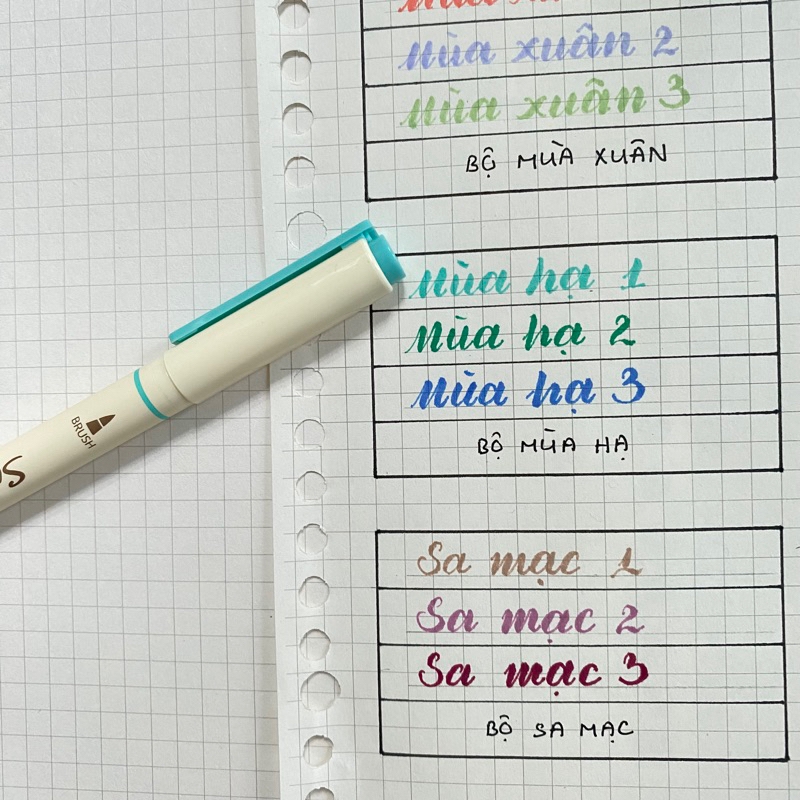 Mùa xuân 2
Mùa xuân 3
BỘ MÙA XUÂN
Mùa hạ 1
Mùa hạ 2
Mùa hạ 3
BỘ MÙA HẠ
BRUSH
Sa mạc 1
Sa mạc 2
Sa mạc 3
BỘ SA MẠC